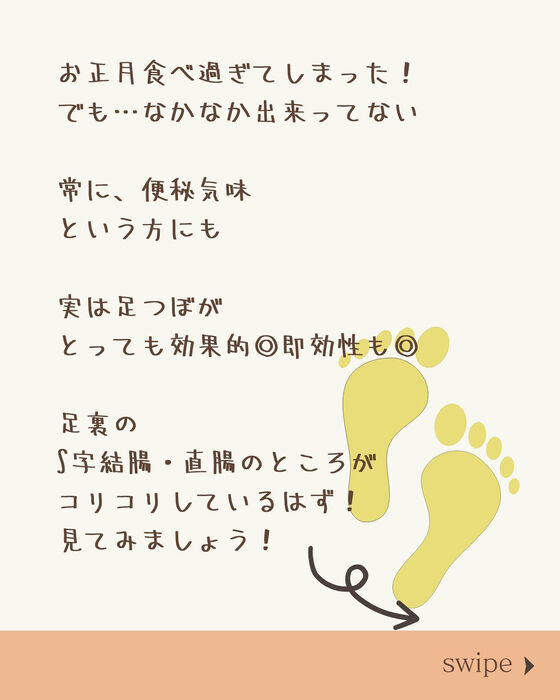 お正月食べ過ぎてしまった！
でも…なかなか出来ってない
常に、便秘気味
という方にも
実は足つぼが
とっても効果的◎即効性も◎
足裏の
S字結腸・直腸のところが
コリコリしているはず！
見てみましょう！
swipe